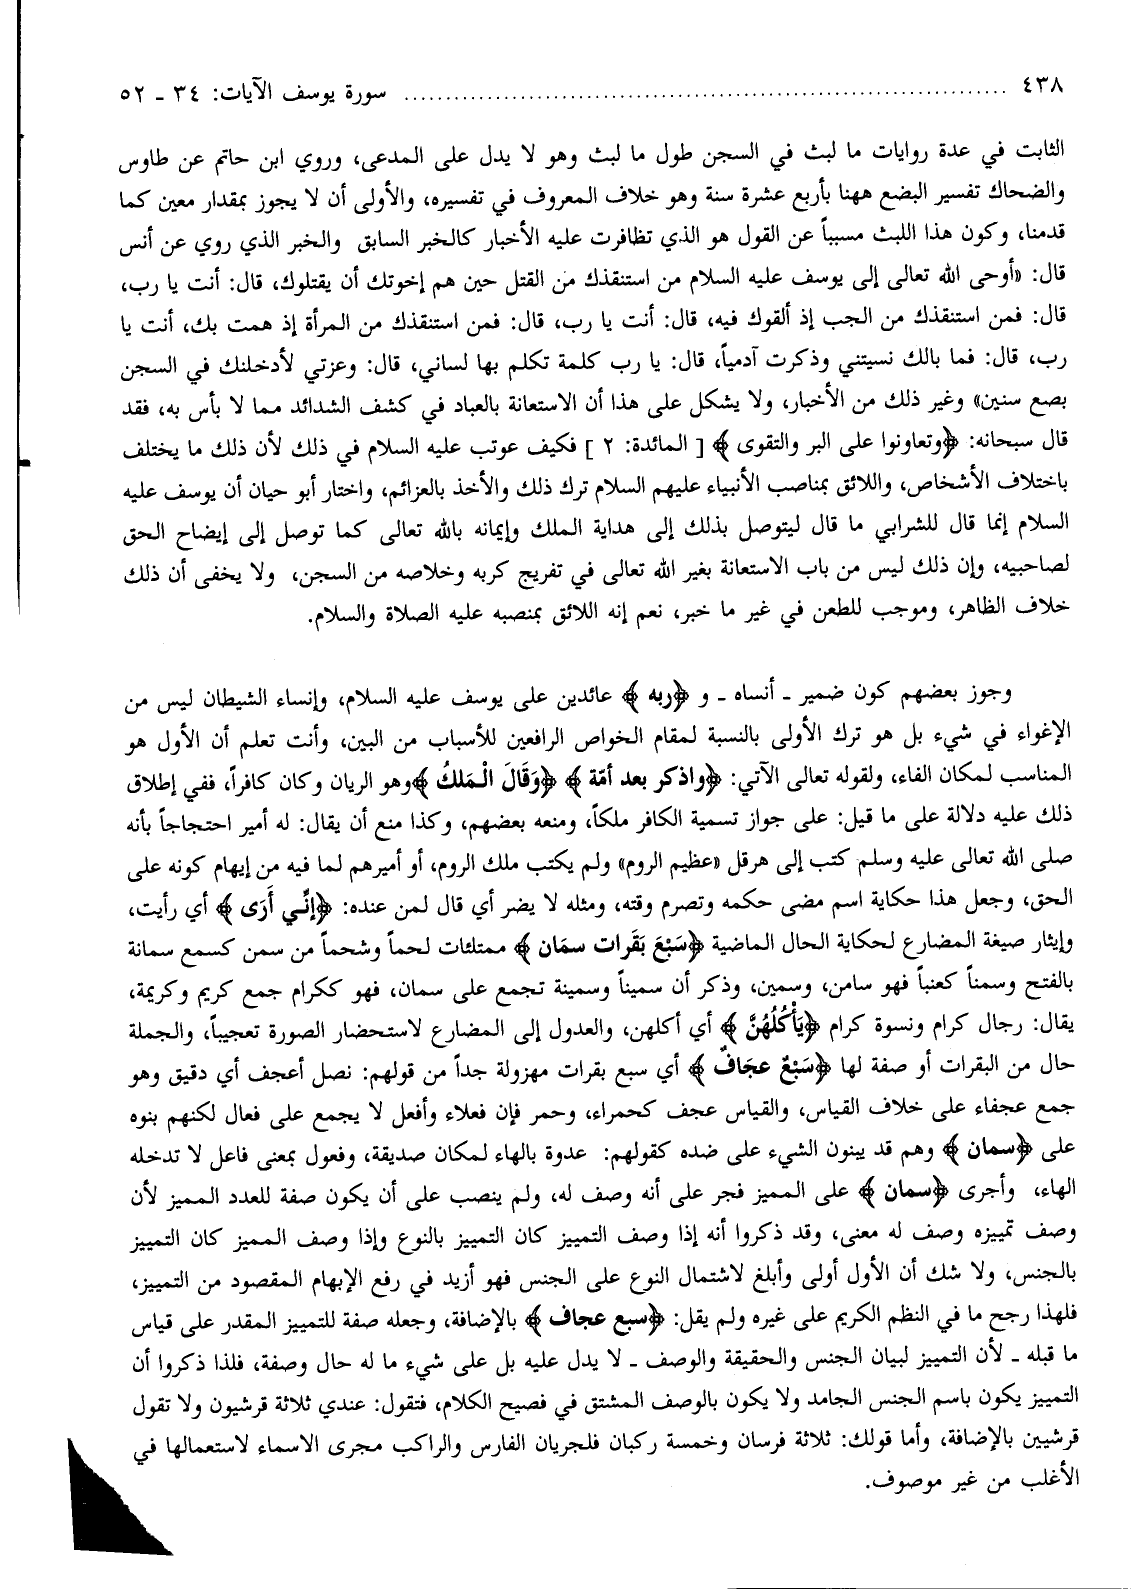 ٤٣٨ ........................................................................ سورة يوسف الآيات: ٣٤ ـ ٥٢
الثابت في عدة روايات ما لبث في السجن طول ما لبث وهو لا يدل على المدعى، وروي ابن حاتم عن طاوس
والضحاك تفسير البضع ههنا بأربع عشرة سنة وهو خلاف المعروف في تفسيره، والأولى أن لا يجوز بمقدار معين كما
قدمنا، وكون هذا اللبث مسبباً عن القول هو الذي تظافرت عليه الأخبار كالخبر السابق والخبر الذي روي عن أنس
قال: «أوحى الله تعالى إلى يوسف عليه السلام من استنقذك من القتل حين هم إخوتك أن يقتلوك، قال: أنت يا رب،
قال: فمن استنقذك من الجب إذ ألقوك فيه، قال: أنت يا رب، قال: فمن استنقذك من المرأة إذ همت بك، أنت يا
رب، قال: فما بالك نسيتني وذكرت آدمياً، قال: يا رب كلمة تكلم بها لساني، قال: وعزتي لأدخلنك في السجن
بضع سنين» وغير ذلك من الأخبار، ولا يشكل على هذا أن الاستعانة بالعباد في كشف الشدائد مما لا بأس به، فقد
قال سبحانه: ﴿وتعاونوا على البر والتقوى﴾ [ المائدة: ٢ ] فكيف عوتب عليه السلام في ذلك لأن ذلك ما يختلف
باختلاف الأشخاص، واللائق بمناصب الأنبياء عليهم السلام ترك ذلك والأخذ بالعزائم، واختار أبو حيان أن يوسف عليه
السلام إنما قال للشرابي ما قال ليتوصل بذلك إلى هداية الملك وإيمانه بالله تعالى كما توصل إلى إيضاح الحق
لصاحبيه، وإن ذلك ليس من باب الاستعانة بغير الله تعالى في تفريج كربه وخلاصه من السجن، ولا يخفى أن ذلك
خلاف الظاهر، وموجب للطعن في غير ما خبر، نعم إنه اللائق بمنصبه عليه الصلاة والسلام.
وجوز بعضهم كون ضمير ـ أنساه ـ و ﴿ربه﴾ عائدين على يوسف عليه السلام، وإنساء الشيطان ليس من
الإغواء في شيء بل هو ترك الأولى بالنسبة لمقام الخواص الرافعين للأسباب من البين، وأنت تعلم أن الأول هو
المناسب لمكان الفاء، ولقوله تعالى الآتي: ﴿واذكر بعد أمّة﴾ ﴿وَقَالَ الْمَلكُ﴾ وهو الريان وكان كافراً، ففي إطلاق
ذلك عليه دلالة على ما قيل: على جواز تسمية الكافر ملكاً، ومنعه بعضهم، وكذا منع أن يقال: له أمير احتجاجاً بأنه
صلى الله تعالى عليه وسلم كتب إلى هرقل «عظيم الروم» ولم يكتب ملك الروم، أو أميرهم لما فيه من إيهام كونه على
الحق، وجعل هذا حكاية اسم مضى حكمه وتصرم وقته، ومثله لا يضر أي قال لمن عنده: ﴿إنِّي أَرَى﴾ أي رأيت،
وإيثار صيغة المضارع لحكاية الحال الماضية ﴿سَبْعَ بَقَرات سمَان﴾ ممتلئات لحماً وشحماً من سمن كسمع سمانة
بالفتح وسمناً كعنباً فهو سامن، وسمين، وذكر أن سميناً وسمينة تجمع على سمان، فهو ككرام جمع كريم وكريمة،
يقال: رجال كرام ونسوة كرام ﴿يَأْكُلُهُنَّ﴾ أي أكلهن، والعدول إلى المضارع لاستحضار الصورة تعجيباً، والجملة
حال من البقرات أو صفة لها ﴿سَبْعٌ عجَافٌ﴾ أي سبع بقرات مهزولة جداً من قولهم: نصل أعجف أي دقيق وهو
جمع عجفاء على خلاف القياس، والقياس عجف كحمراء، وحمر فإن فعلاء وأفعل لا يجمع على فعال لكنهم بنوه
على ﴿سمان﴾ وهم قد يبنون الشيء على ضده كقولهم: عدوة بالهاء لمكان صديقة، وفعول بمعنى فاعل لا تدخله
الهاء، وأجرى ﴿سمان﴾ على المميز فجر على أنه وصف له، ولم ينصب على أن يكون صفة للعدد المميز لأن
وصف تمييزه وصف له معنى، وقد ذكروا أنه إذا وصف التمييز كان التمييز بالنوع وإذا وصف المميز كان التمييز
بالجنس، ولا شك أن الأول أولى وأبلغ لاشتمال النوع على الجنس فهو أزيد في رفع الإبهام المقصود من التمييز،
فلهذا رجح ما في النظم الكريم على غيره ولم يقل: ﴿سبع عجاف﴾ بالإضافة، وجعله صفة للتمييز المقدر على قياس
ما قبله ـ لأن التمييز لبيان الجنس والحقيقة والوصف ـ لا يدل عليه بل على شيء ما له حال وصفة، فلذا ذكروا أن
التمييز يكون باسم الجنس الجامد ولا يكون بالوصف المشتق في فصيح الكلام، فتقول: عندي ثلاثة قرشيون ولا تقول
قرشيين بالإضافة، وأما قولك: ثلاثة فرسان وخمسة ركبان فلجريان الفارس والراكب مجرى الاسماء لاستعمالها في
الأغلب من غير موصوف.